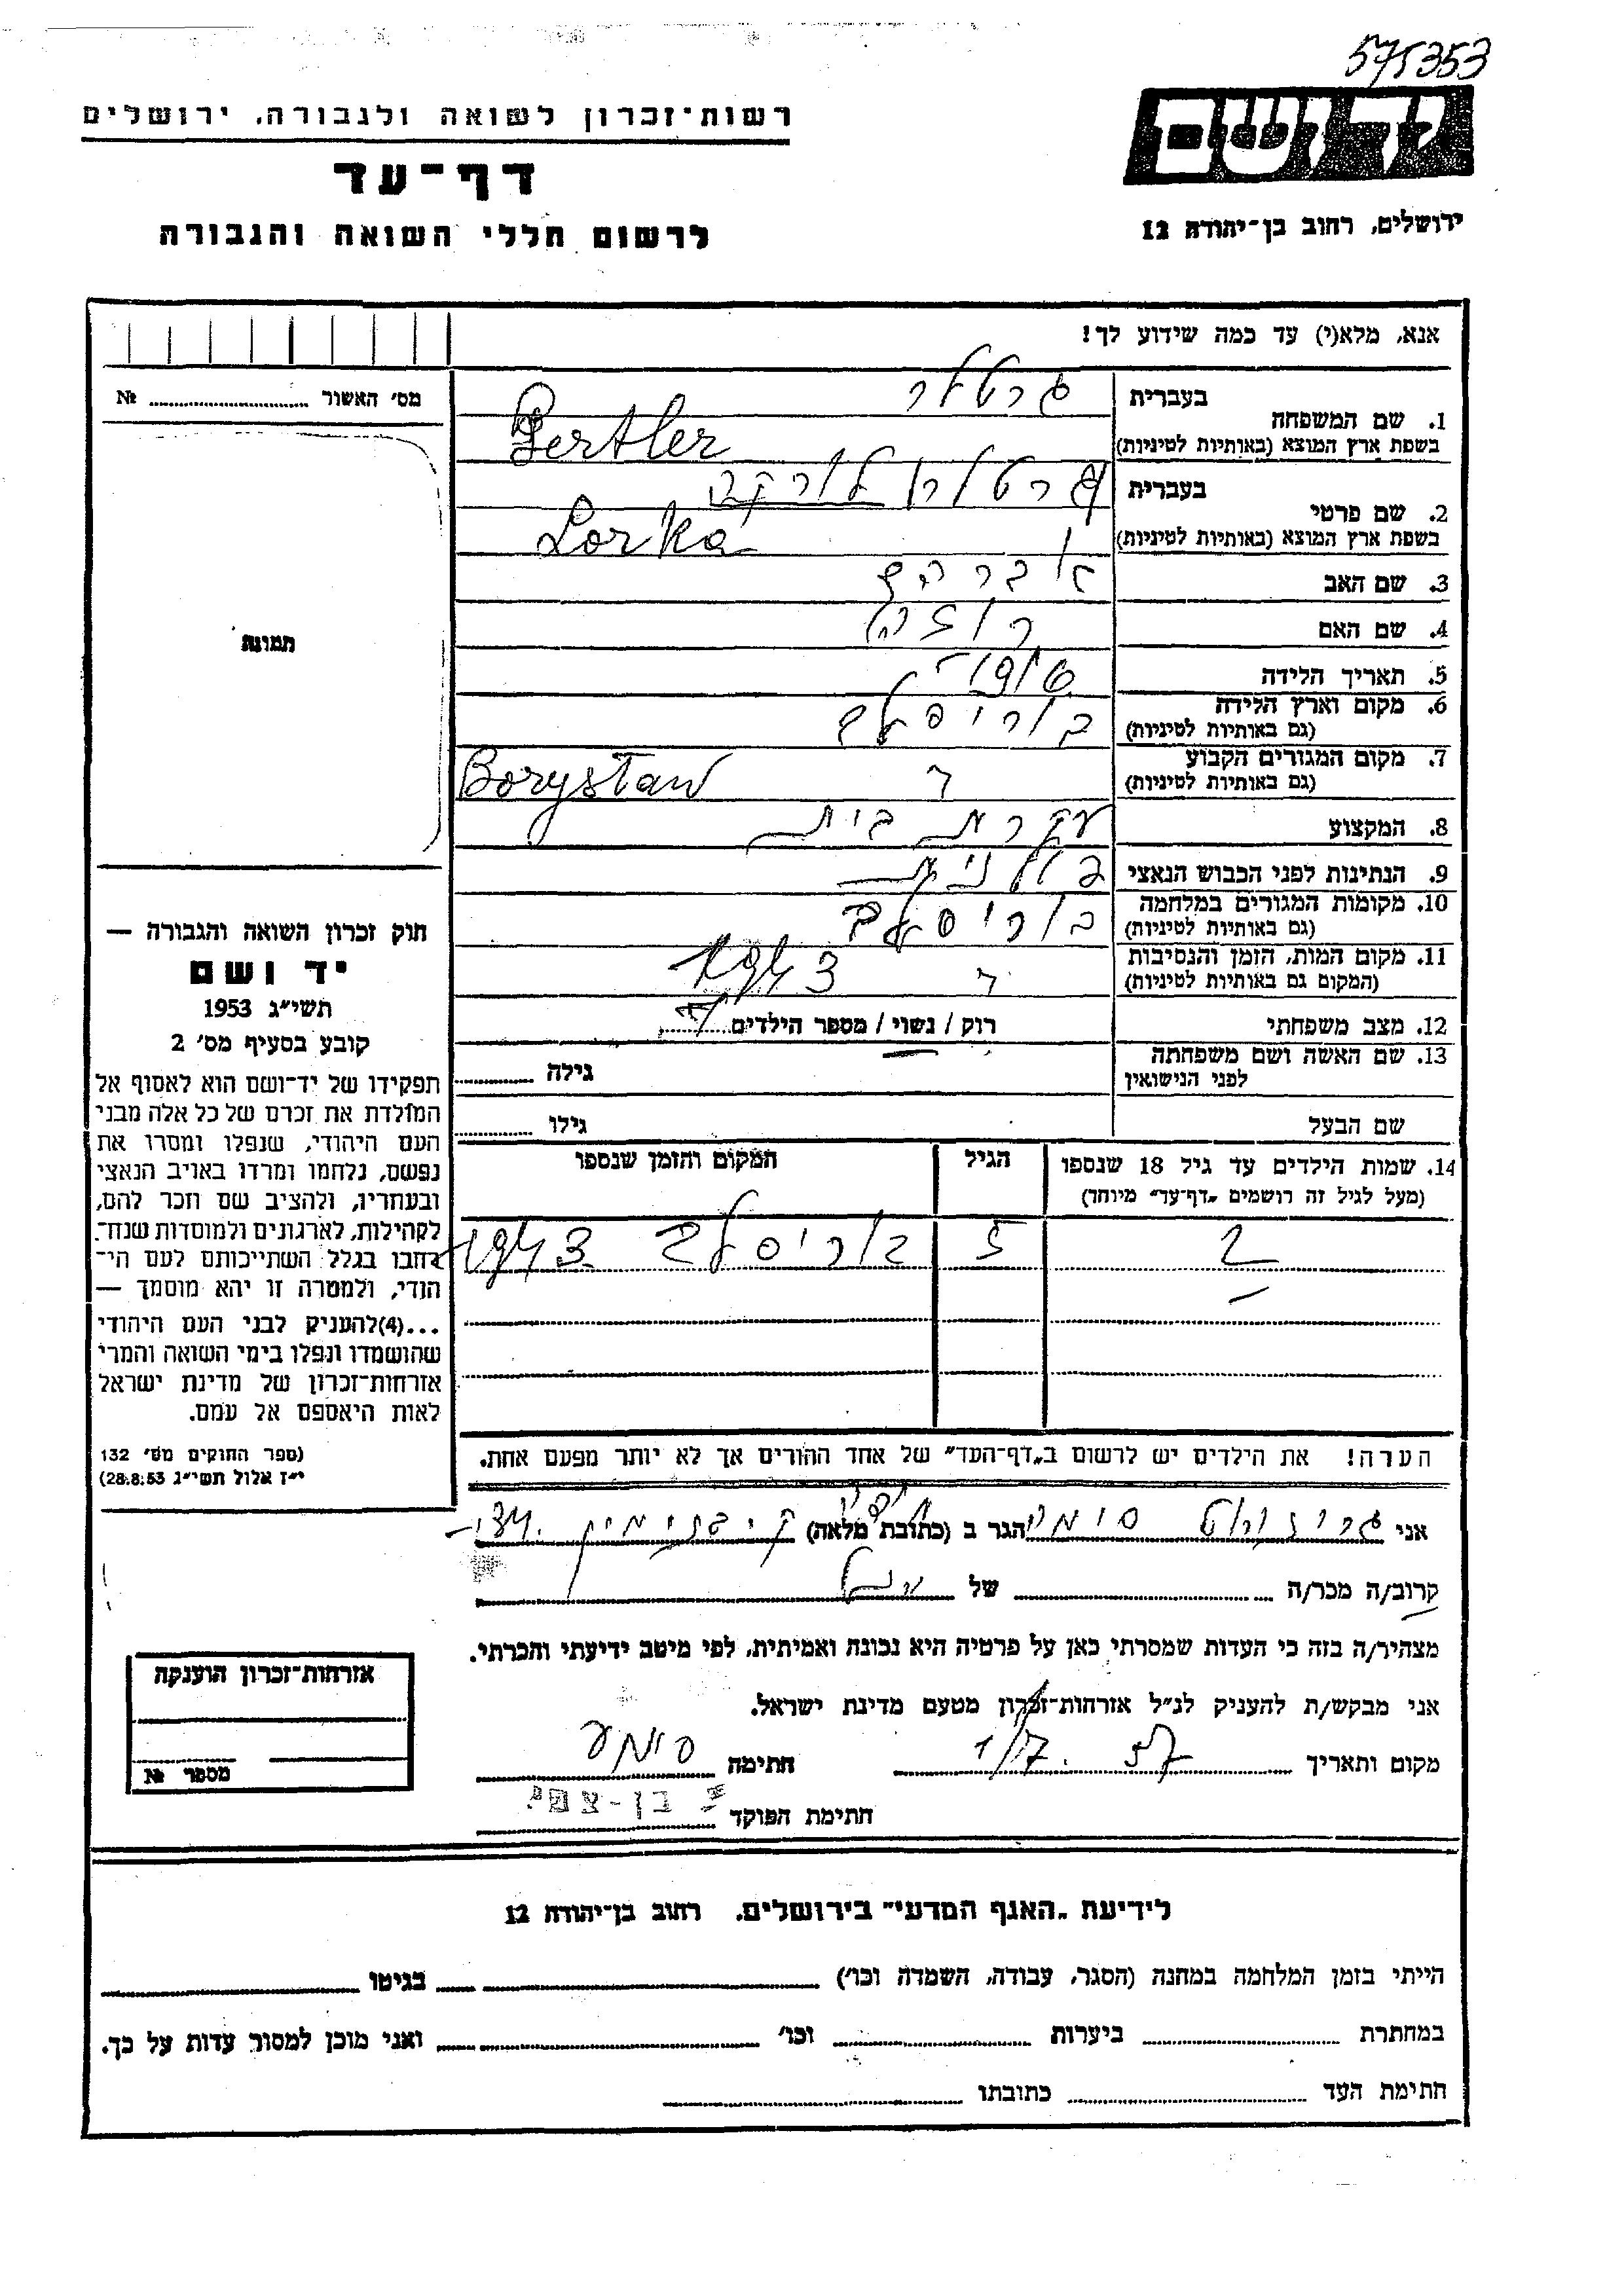 575353
יד ושם
רשות־זכרון לשואה ולגבורה, ירושלים
דף־עד
ירושלים, רחוב בן־יהודה 12
לרשום חללי השואה והגבורה
אנא, מלא(י) עד כמה שידוע לך!
מס׳ האשור № 
תמונה
1. שם המשפחה
בעברית גרטלר
בשפת ארץ המוצא (באותיות לטיניות) Gertler
2. שם פרטי
בעברית לורקה
בשפת ארץ המוצא (באותיות לטיניות) Lorka
3. שם האב
4. שם האם רוזה
5. תאריך הלידה
6. מקום וארץ הלידה
(גם באותיות לטיניות) בוריסלב
7. מקום המגורים הקבוע
(גם באותיות לטיניות) Borystaw
8. המקצוע עקרת בית
9. הנתינות לפני הכבוש הנאצי פולנית
10. מקומות המגורים במלחמה
(גם באותיות לטיניות) בוריסלב
11. מקום המות, הזמן והנסיבות
(המקום גם באותיות לטיניות) 1943
12. מצב משפחתי רוק / נשוי / מספר הילדים
13. שם האשה ושם משפחתה
לפני הנישואין גילה
שם הבעל גילו
14. שמות הילדים עד גיל 18 שנספו הגיל המקום והזמן שנספו
(מעל לגיל זה רושמים „דף־עד״ מיוחד)
2 5 בוריסלב 1943
הערה! את הילדים יש לרשום ב„דף־העד״ של אחד ההורים אך לא יותר מפעם אחת.
חוק זכרון השואה והגבורה —
יד ושם
תשי״ג 1953
קובע בסעיף מס׳ 2
תפקידו של יד־ושם הוא לאסוף אל
המולדת את זכרם של כל אלה מבני
העם היהודי, שנפלו ומסרו את
נפשם, נלחמו ומרדו באויב הנאצי
ובעוזריו, ולהציב שם וזכר להם,
לקהילות, לארגונים ולמוסדות שנח־
רבו בגלל השתייכותם לעם הי־
הודי, ולמטרה זו יהא מוסמך —
...(4)להעניק לבני העם היהודי
שהושמדו ונפלו בימי השואה והמרי
אזרחות־זכרון של מדינת ישראל
לאות היאספם אל עמם.
(ספר החוקים מס׳ 132
י״ז אלול תשי״ג 28.8.53)
אני הגר ב (כתובת מלאה) ק. בנימין
קרוב/ה מכר/ה של
מצהיר/ה בזה כי העדות שמסרתי כאן על פרטיה היא נכונה ואמיתית, לפי מיטב ידיעתי והכרתי.
אני מבקש/ת להעניק לנ״ל אזרחות־זכרון מטעם מדינת ישראל.
מקום ותאריך 1/7. 57 חתימה
חתימת הפוקד
אזרחות־זכרון הוענקה
מספר №
לידיעת „האגף המדעי״ בירושלים, רחוב בן־יהודה 12
הייתי בזמן המלחמה במחנה (הסגר, עבודה, השמדה וכו׳) בגיטו
במחתרת ביערות וכו׳ ואני מוכן למסור עדות על כך.
חתימת העד כתובתו